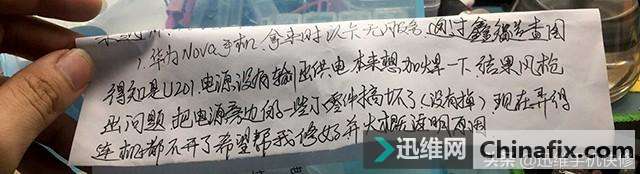 1.华为Nova手机.拿来时以卡无服务 通过鑫智造查图
得知是U201.电源没有输出供电本来想加焊一下结果风枪
出问题 把电源旁边的一些小零件搞坏了(没有掉).现在弄得
连机都不开了希望帮我修好并大概说明原因
迅维网 Chinafix.com
头条@迅维手机快修